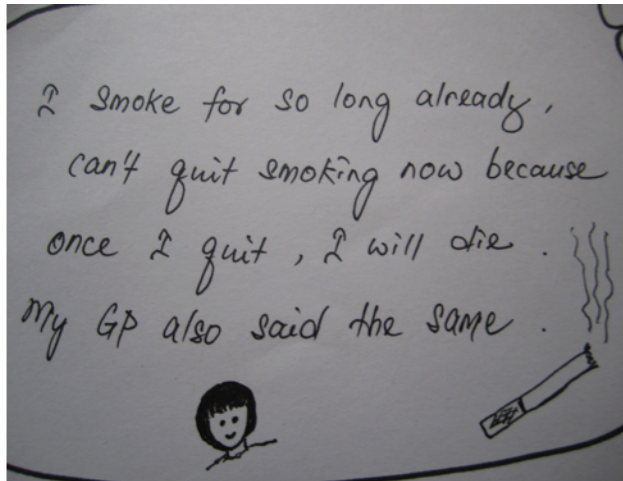 I smoke for so long already,
can't quit smoking now because
once I quit, I will die.
My GP also said the same.